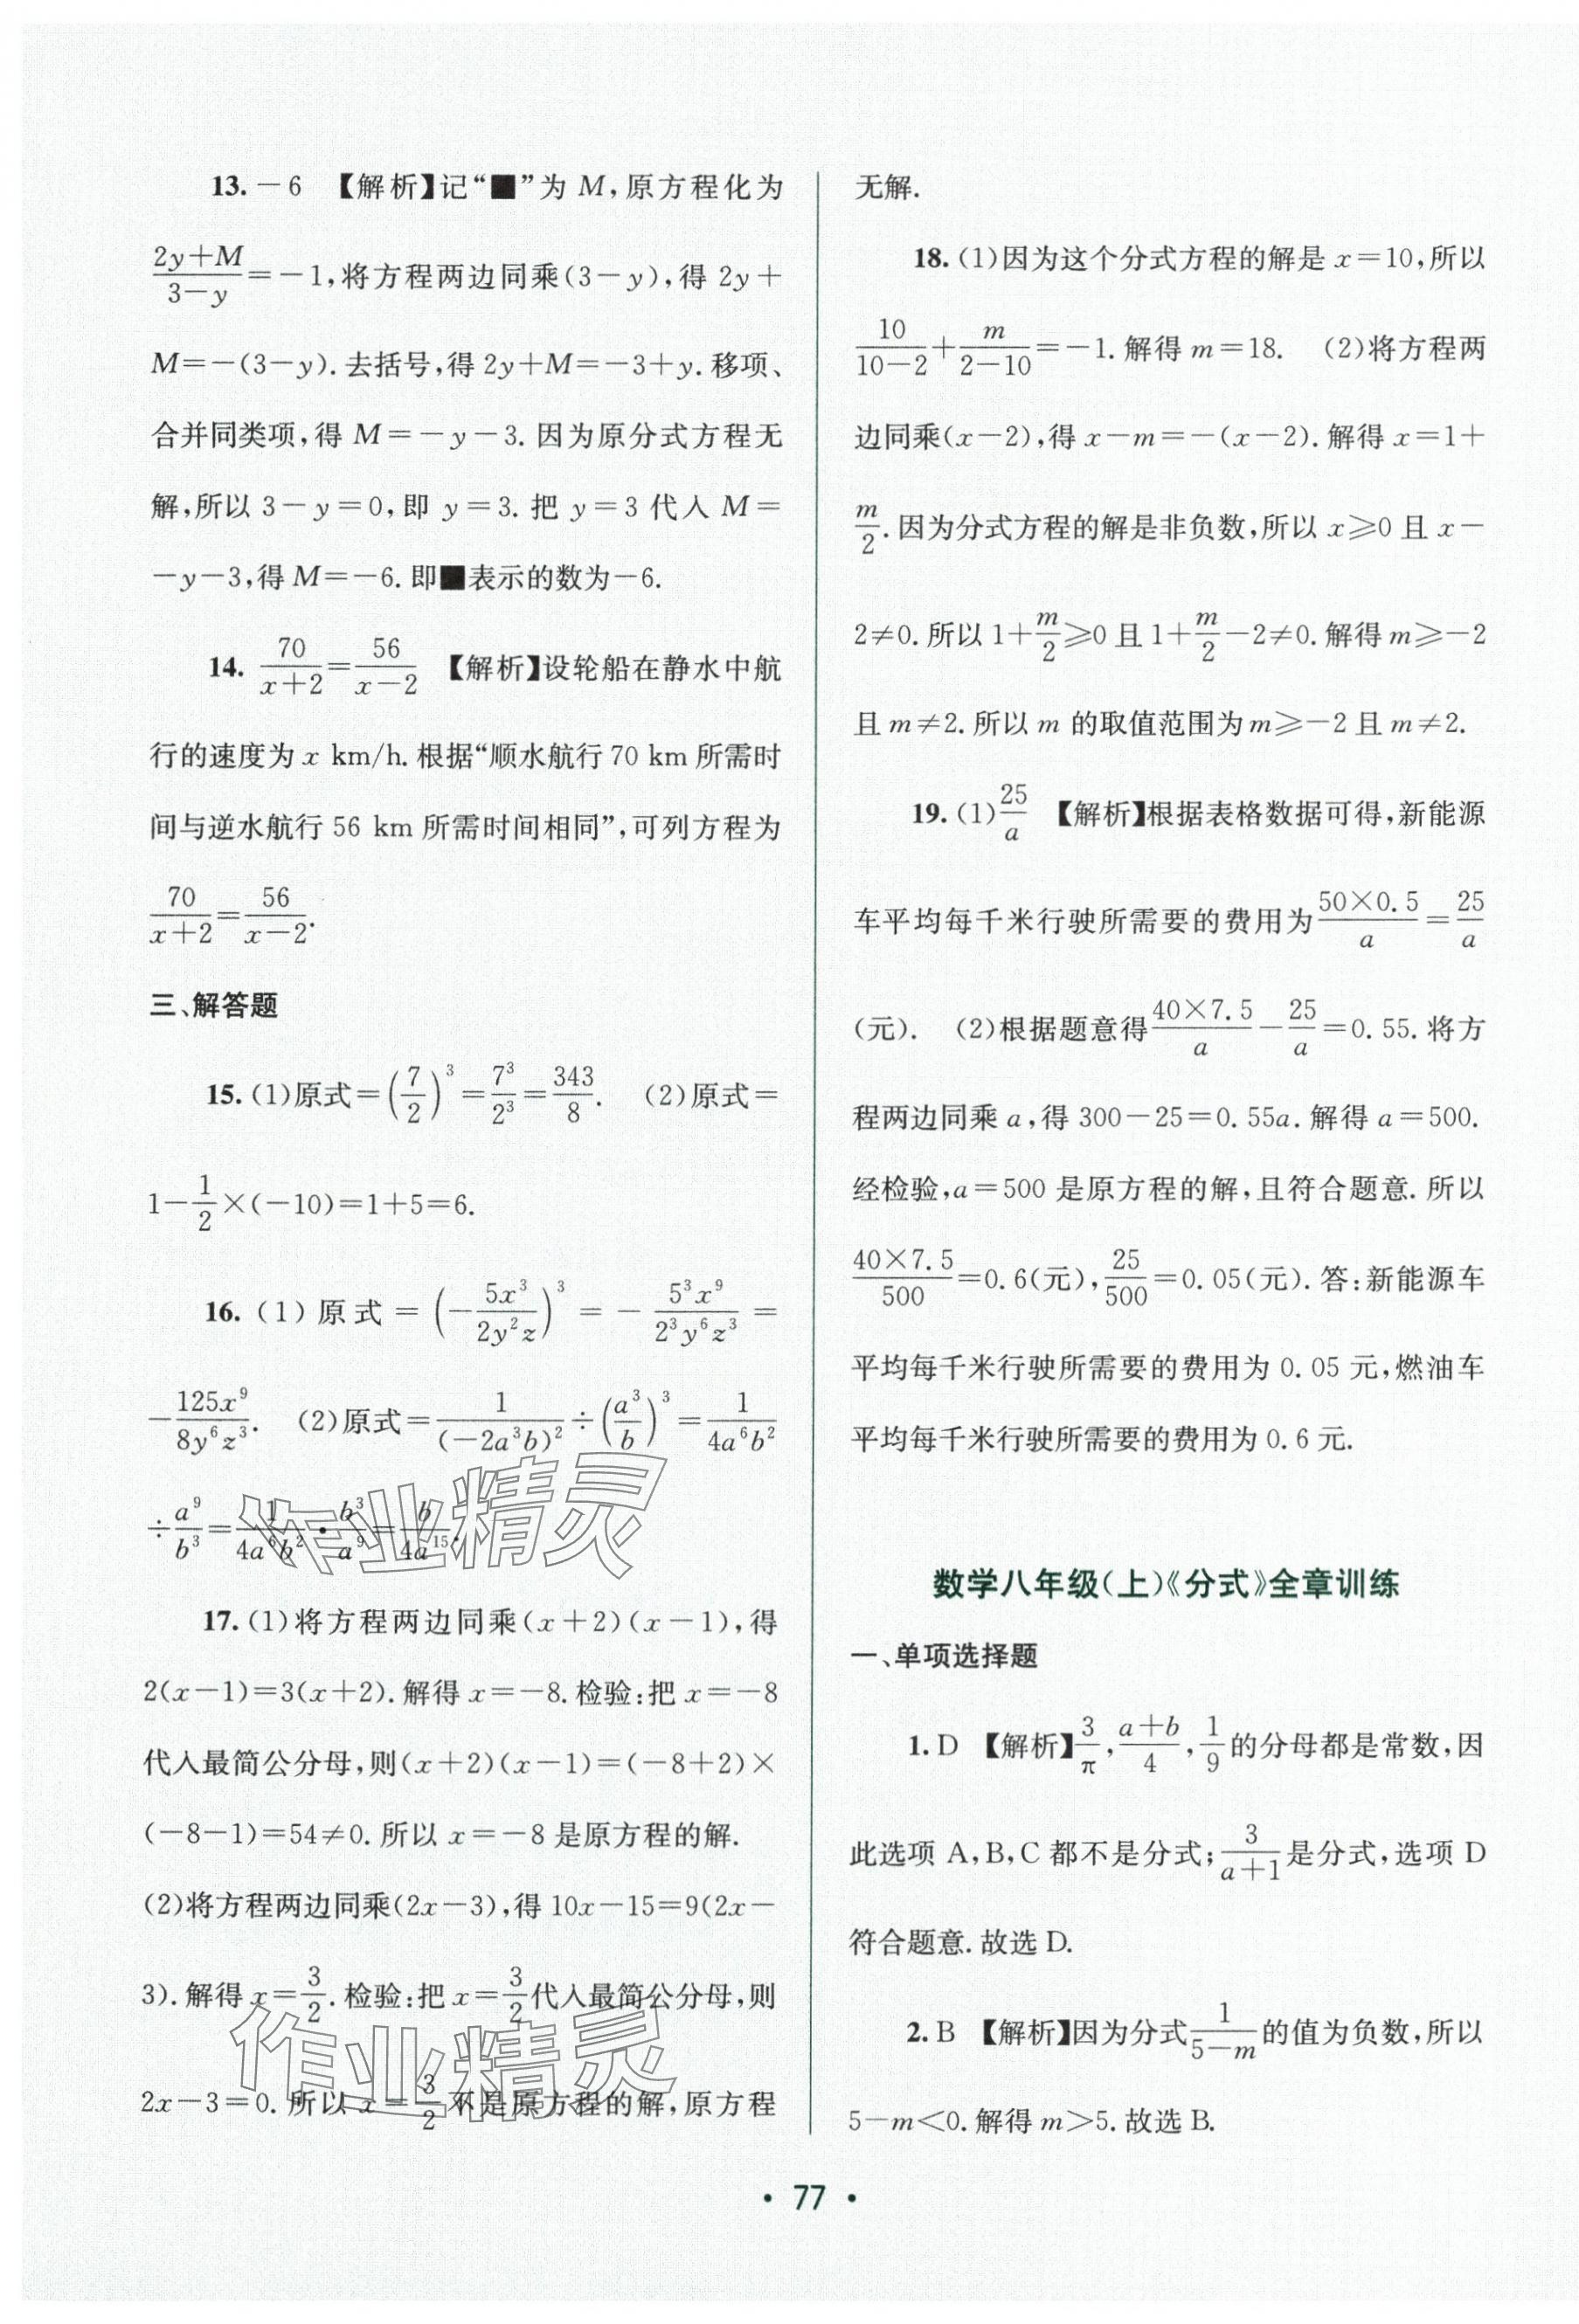 13. －6　【解析】记“■”为 M，原方程化为
\frac{2y+M}{3-y}=-1，将方程两边同乘(3-y)，得 2y+
M=-(3-y). 去括号，得 2y+M=-3+y. 移项、
合并同类项，得 M=-y-3. 因为原分式方程无
解，所以 3-y=0，即 y=3. 把 y=3 代入 M=
-y-3，得 M=-6. 即■表示的数为-6.
14. \frac{70}{x+2}=\frac{56}{x-2}　【解析】设轮船在静水中航
行的速度为 x km/h. 根据“顺水航行 70 km 所需时
间与逆水航行 56 km 所需时间相同”，可列方程为
\frac{70}{x+2}=\frac{56}{x-2}.
三、解答题
15. (1)原式=(\frac{7}{2})^3=\frac{7^3}{2^3}=\frac{343}{8}.　(2)原式=
1-\frac{1}{2}×(-10)=1+5=6.
16. (1)原式=(-\frac{5x^3}{2y^2z})^3=-\frac{5^3x^9}{2^3y^6z^3}=
-\frac{125x^9}{8y^6z^3}.　(2)原式=\frac{1}{(-2a^3b)^2}÷(\frac{a^3}{b})^3=\frac{1}{4a^6b^2}
÷\frac{a^9}{b^3}=\frac{1}{4a^6b^2}·\frac{b^3}{a^9}=\frac{b}{4a^{15}}.
作业精灵
17. (1)将方程两边同乘(x+2)(x-1)，得
2(x-1)=3(x+2). 解得 x=-8. 检验：把 x=-8
代入最简公分母，则(x+2)(x-1)=(-8+2)×
(-8-1)=54≠0. 所以 x=-8 是原方程的解.
(2)将方程两边同乘(2x-3)，得 10x-15=9(2x-
3). 解得 x=\frac{3}{2}. 检验：把 x=\frac{3}{2}代入最简公分母，则
作业精灵
2x-3=0. 所以 x=\frac{3}{2}不是原方程的解，原方程
无解.
18. (1)因为这个分式方程的解是 x=10，所以
\frac{10}{10-2}+\frac{m}{2-10}=-1. 解得 m=18.　(2)将方程两
边同乘(x-2)，得 x-m=-(x-2). 解得 x=1+
\frac{m}{2}. 因为分式方程的解是非负数，所以 x≥0 且 x-
2≠0. 所以 1+\frac{m}{2}≥0 且 1+\frac{m}{2}-2≠0. 解得 m≥-2
且 m≠2. 所以 m 的取值范围为 m≥-2 且 m≠2.
19. (1)\frac{25}{a}　【解析】根据表格数据可得，新能源
车平均每千米行驶所需要的费用为\frac{50×0.5}{a}=\frac{25}{a}
(元).　(2)根据题意得\frac{40×7.5}{a}-\frac{25}{a}=0.55. 将方
程两边同乘 a，得 300-25=0.55a. 解得 a=500.
经检验，a=500 是原方程的解，且符合题意. 所以
\frac{40×7.5}{500}=0.6(元)，\frac{25}{500}=0.05(元). 答：新能源车
平均每千米行驶所需要的费用为 0.05 元，燃油车
平均每千米行驶所需要的费用为 0.6 元.
数学八年级(上)《分式》全章训练
一、单项选择题
1. D　【解析】\frac{3}{π}，\frac{a+b}{4}，\frac{1}{9}的分母都是常数，因
此选项 A，B，C 都不是分式；\frac{3}{a+1}是分式，选项 D
符合题意. 故选 D.
2. B　【解析】因为分式\frac{1}{5-m}的值为负数，所以
5-m<0. 解得 m>5. 故选 B.
· 77 ·